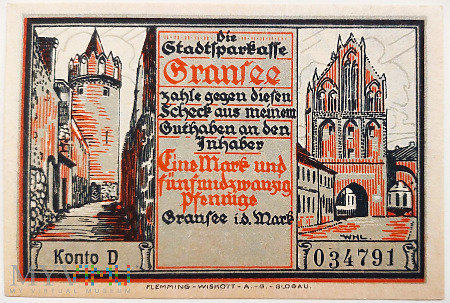 Die
Stadtsparkasse
Gransee
zahle gegen diesen
Scheck aus meinem
Guthaben an den
Inhaber
Eine Mark und
fünfundzwanzig
Pfennige
Gransee i.d. Mark
WHL.
Konto D
034791
FLEMMING-WISKOTT-A.-G.-GLOGAU.